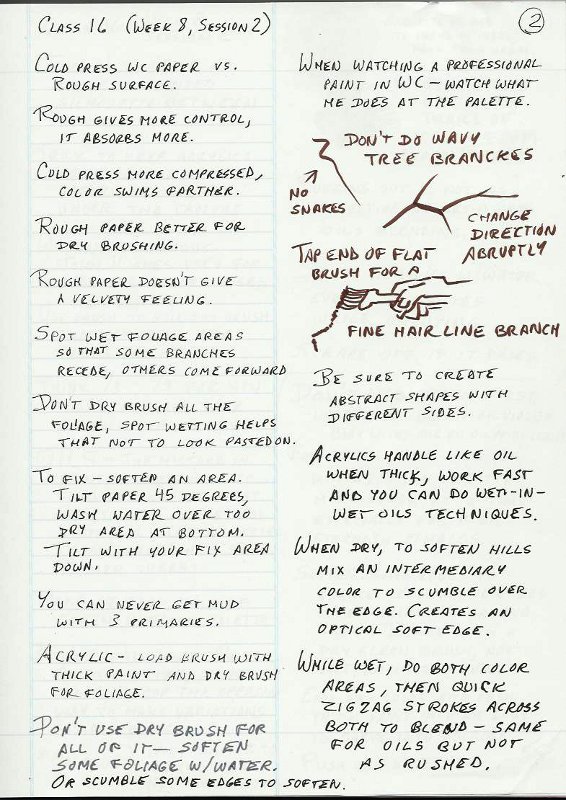 Class 16 (Week 8, Session 2)
2
Cold press WC paper vs.
rough surface.
Rough gives more control,
it absorbs more.
Cold press more compressed,
color swims farther.
Rough paper better for
dry brushing.
Rough paper doesn't give
a velvety feeling.
Spot wet foliage areas
so that some branches
recede, others come forward
Don't dry brush all the
foliage, spot wetting helps
that not to look pasted on.
To fix – soften an area.
Tilt paper 45 degrees,
wash water over too
dry area at bottom.
Tilt with your fix area
down.
You can never get mud
with 3 primaries.
Acrylic – load brush with
thick paint and dry brush
for foliage.
Don't use dry brush for
all of it – soften
some foliage w/water.
Or scumble some edges to soften.
When watching a professional
paint in WC – watch what
he does at the palette.
Don't do wavy
tree branches
No
snakes
change
direction
abruptly
Tap end of flat
brush for a
fine hair line branch
Be sure to create
abstract shapes with
different sides.
Acrylics handle like oil
when thick, work fast
and you can do wet-in-
wet oils techniques.
When dry, to soften hills
mix an intermediary
color to scumble over
the edge. Creates an
optical soft edge.
While wet, do both color
areas, then quick
zigzag strokes across
both to blend – same
for oils but not
as rushed.